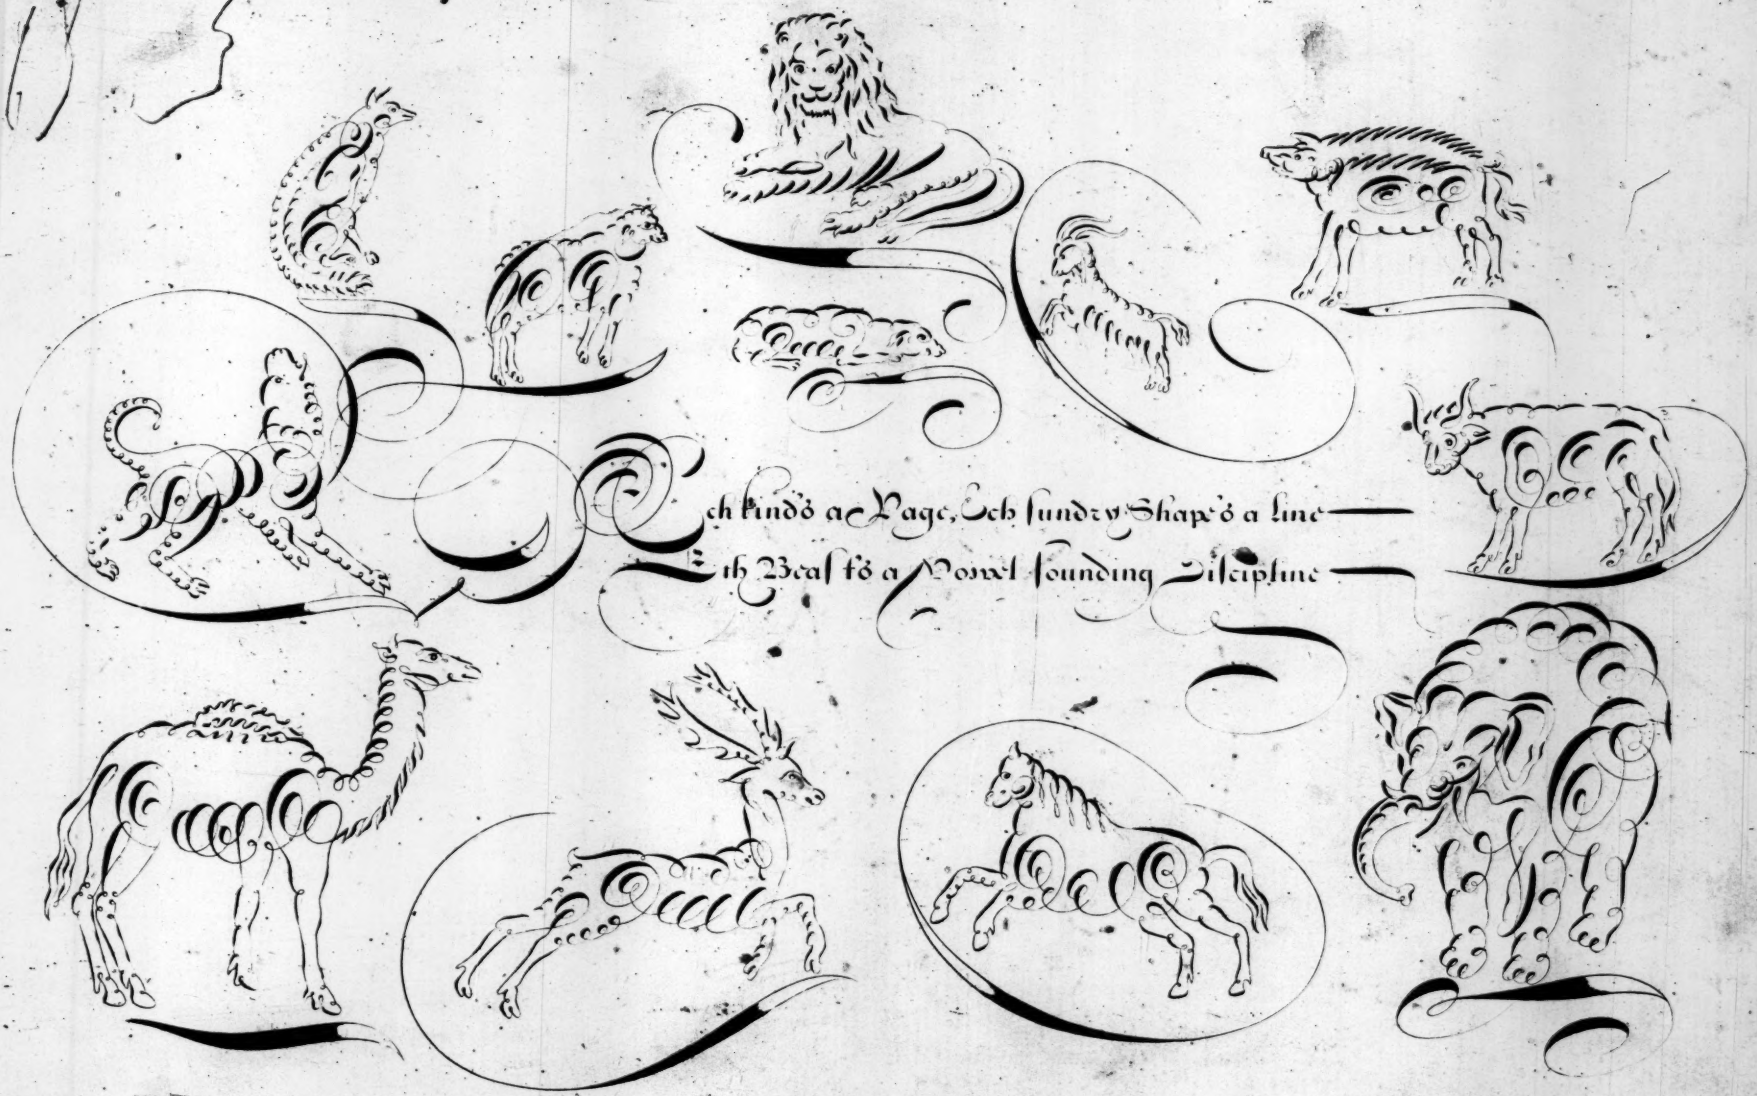 Ech kind's a Page, Ech sundry Shape's a line
Ech Beast's a Vowel sounding Discipline